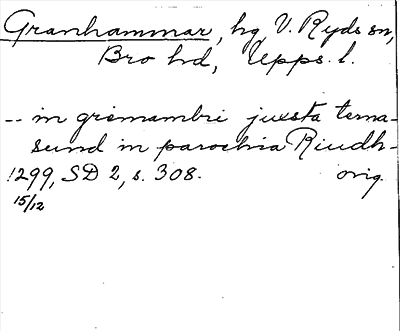 Granhammar, hg, V. Ryds sn,
Bro hd, Upps. l.
-- in gremambri juxsta terna-
sund in parochia Riudh-
1299, SD 2, s. 308. orig.
15/12